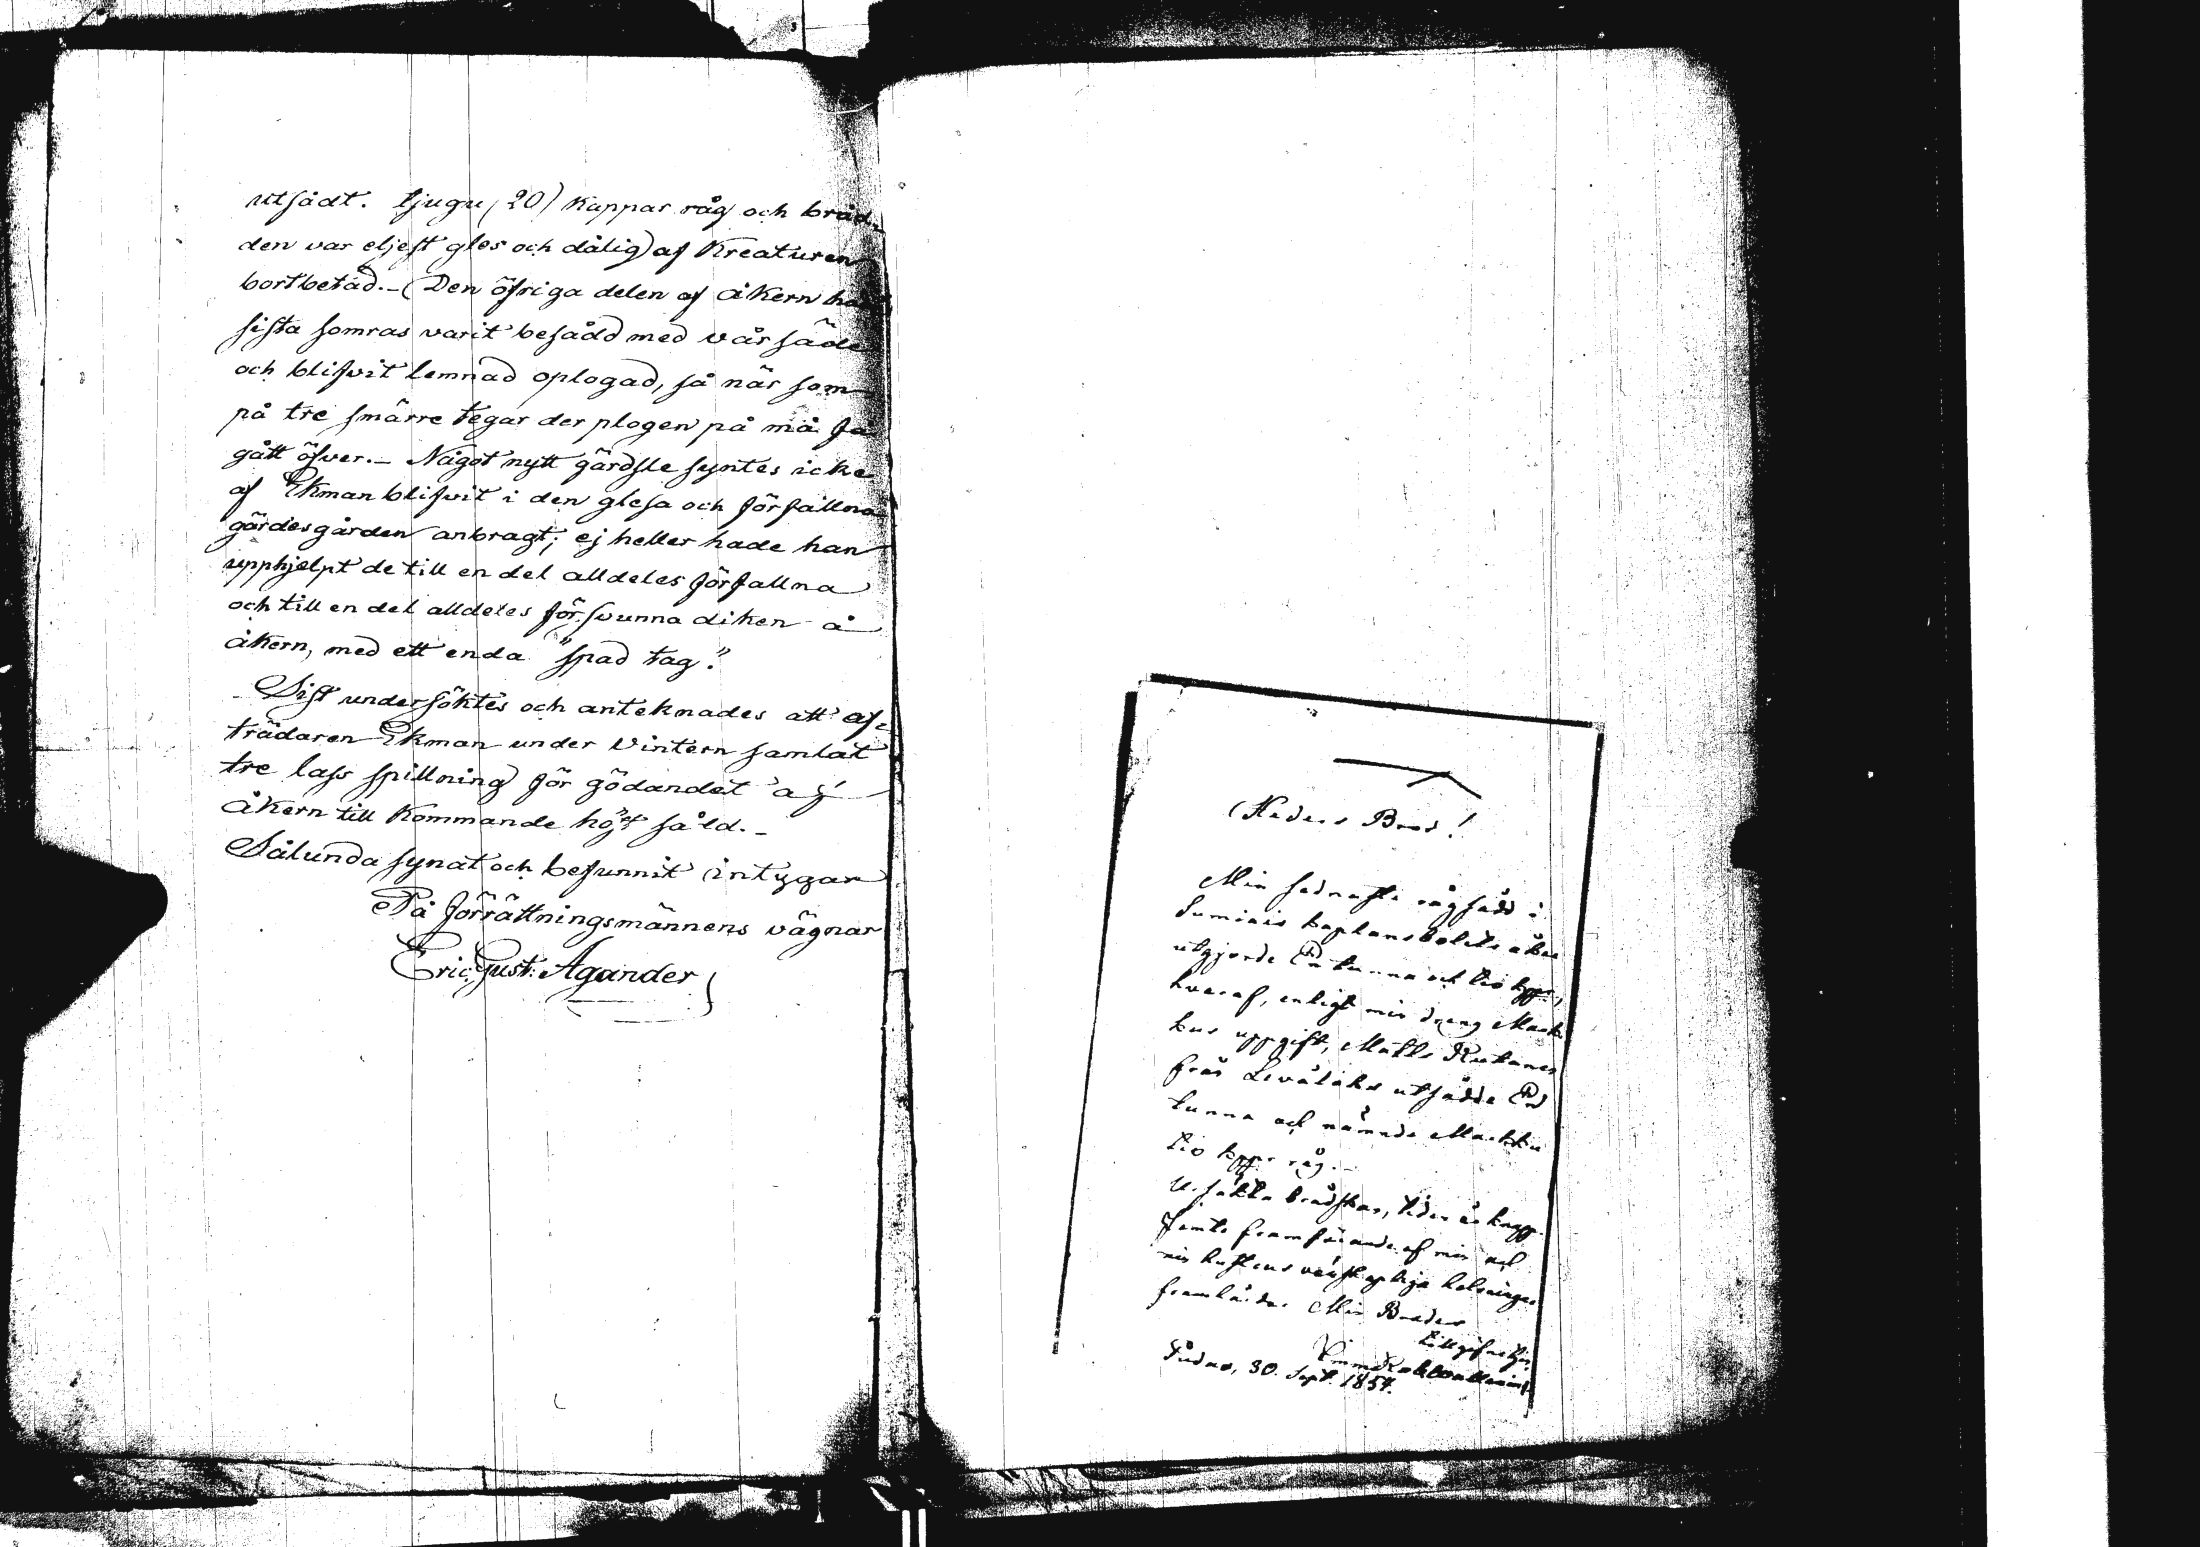 utsådt. tjugu (20) Kappar råg och bråd-
den var eljest gles och dålig) af Kreaturen
bortbetad. - (Den öfriga delen af åkern ha
sista somras varit besådd med vårsäde
och blifvit lemnad oplogad, så när som
på tre smärre tegar der plogen på må få
gått öfver. - Något nytt gärdsle syntes icke
af Ekman blifvit i den glesa och förfallna
gärdesgården anbragt; ej heller hade han
upphjelpt de till en del alldeles förfallna
och till en del alldeles försvunna diken å
åkern, med ett enda "spad tag".
Sist undersöktes och anteknades att af-
trädaren Ekman under Vintern samlat
tre lass spillning för gödandet af
åkern till Kommande höst såld. -
Sålunda synat och befunnit intygar
På förrättningsmännens vägnar
Eric Gust: Agander
Heders Bror!
Min sednaste rågsådd i
Sumiais kaplansbolets åker
utgjorde En tunna och tio kppr,
hvaraf, enligt min dreng Mark-
kus uppgift, Matts Rutanen
från Levälaks utsådde En
tunna och nämnde Markku
tio kppr råg. -
Ursäkta brådskan, tiden är knapp.
Jemte framförande af min och
min hustrus vänskapliga helsningar
framhärdar Min Broders
tillgifne
30. Sept. 1854.